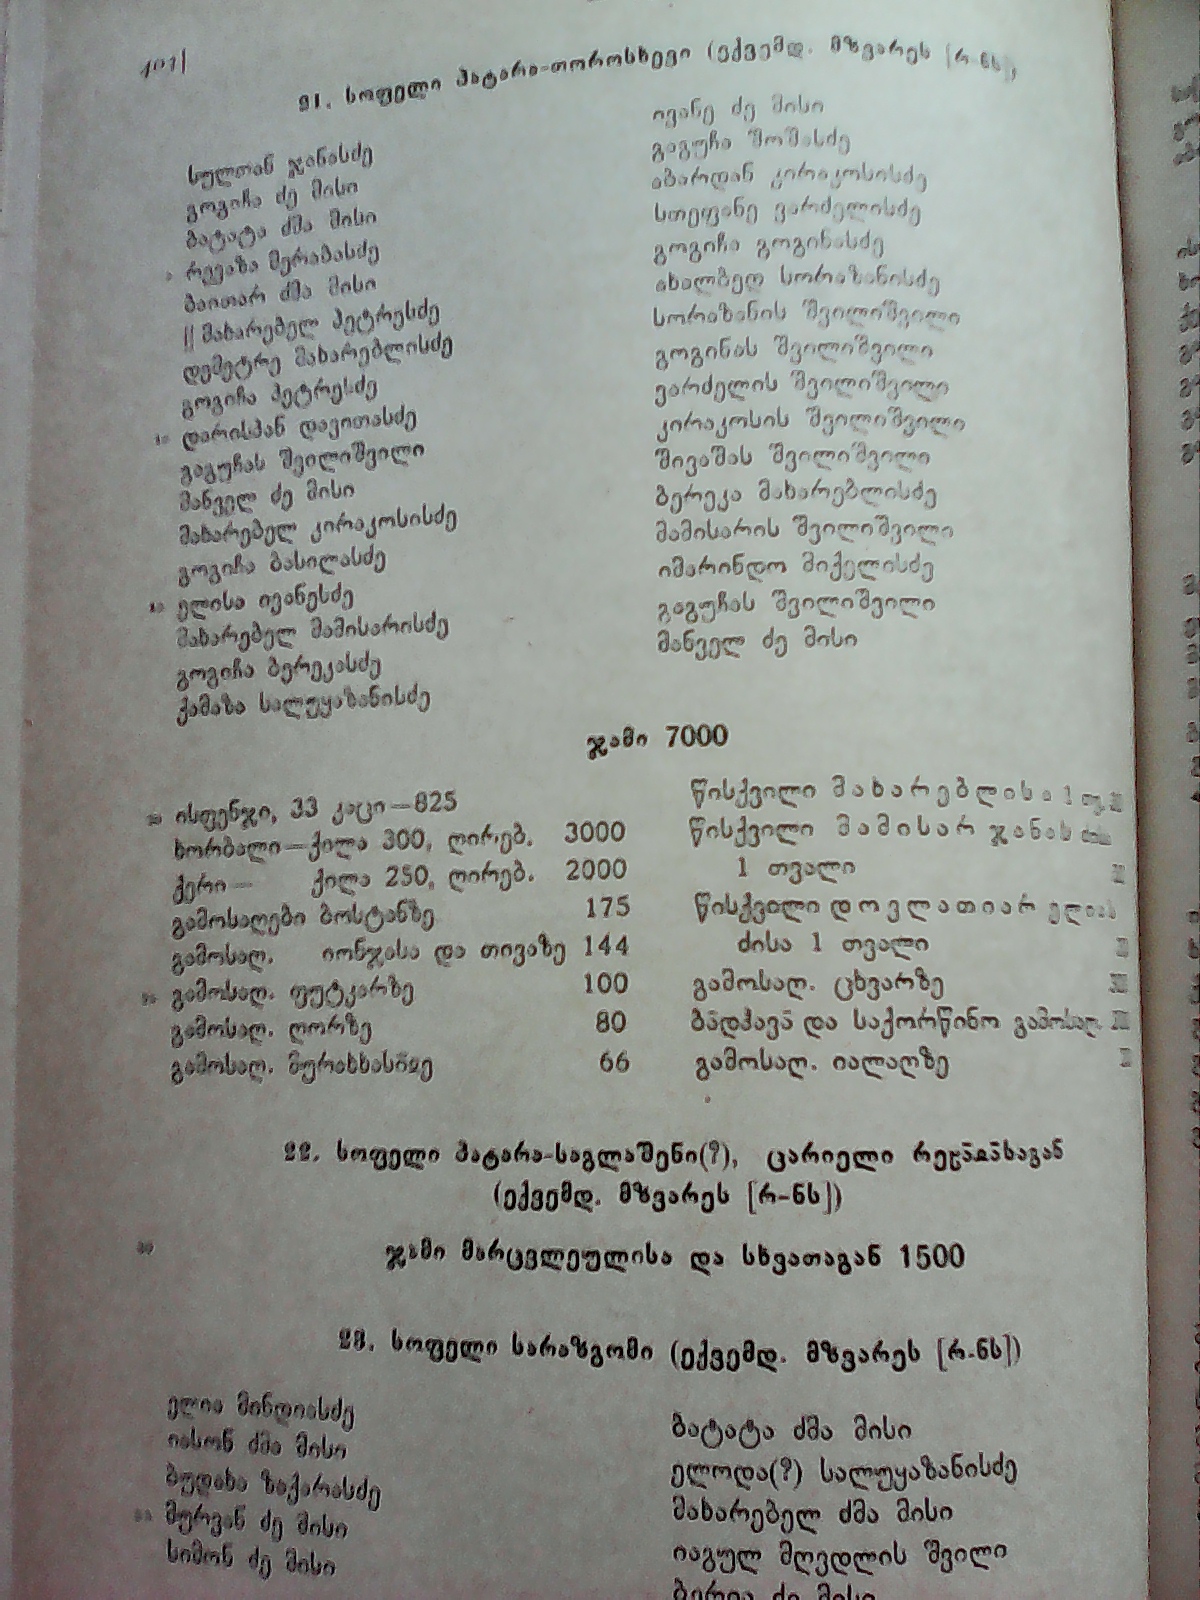 21. სოფელი პატარა-თოროსხევი (ექვემდ. მზვარეს [რ-ნს])
სულთან ჯანასძე
გოგიჩა ძე მისი
ბატატა ძმა მისი
რევაზა მერაბასძე
ბაითარ ძმა მისი
|| მახარებელ პეტრესძე
დემეტრე მახარებლისძე
გოგიჩა პეტრესძე
10 დარისპან დავითასძე
გაგუჩას შვილიშვილი
მანველ ძე მისი
მახარებელ კირაკოსისძე
გოგიჩა ბასილასძე
ელისა ივანესძე
მახარებელ მამისარისძე
გოგიჩა ბერეკასძე
ქამაზა სალუყაზანისძე
ივანე ძე მისი
გაგუჩა შოშასძე
აბარდან კირაკოსისძე
სთეფანე ვარძელისძე
გოგიჩა გოგინასძე
ახალბედ სორაზანისძე
სორაზანის შვილიშვილი
გოგინას შვილიშვილი
ვარძელის შვილიშვილი
კირაკოსის შვილიშვილი
შივაშას შვილიშვილი
ბერეკა მახარებლისძე
მამისარის შვილიშვილი
იმარინდო მიქელისძე
გაგუჩას შვილიშვილი
მანველ ძე მისი
ჯამი 7000
ისფენჯი, 33 კაცი—825
ხორბალი—ქილა 300, ღირებ. 3000
ქერი— ქილა 250, ღირებ. 2000
გამოსაღები ბოსტანზე 175
გამოსაღ. იონჯასა და თივაზე 144
გამოსაღ. ფუტკარზე 100
გამოსაღ. ღორზე 80
გამოსაღ. 66
წისქვილი მახარებლისა 1
წისქვილი მამისარ
1 თვალი
წისქვილი დოვლათიარ
ძისა 1 თვალი
გამოსაღ. ცხვარზე
ბადჰავა და საქორწინო გამოსაღ.
გამოსაღ. იალაღზე
22. სოფელი პატარა-საგლაშენი(?), ცარიელი
(ექვემდ. მზვარეს [რ-ნს])
ჯამი მარცვლეულისა და სხვათაგან 1500
23. სოფელი სარაზგომი (ექვემდ. მზვარეს [რ-ნს])
ელია მინდიასძე
იასონ ძმა მისი
ბუდახა ზაქარასძე
მურვან ძე მისი
სიმონ ძე მისი
ბატატა ძმა მისი
ელოდა(?) სალუყაზანისძე
მახარებელ ძმა მისი
იაგულ მღვდლის შვილი
ბერია ძე მისი